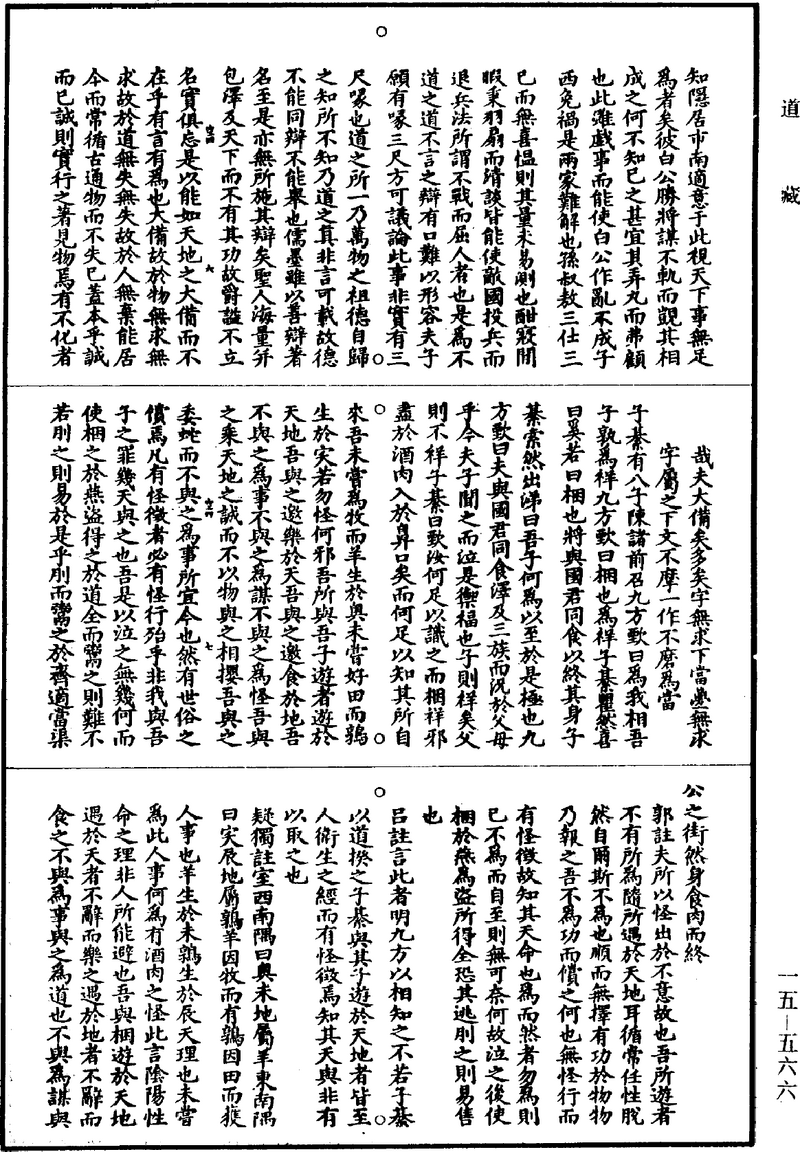 道藏
知隱居市南適意于此視天下事無足
為者矣彼白公勝將謀不軌而覬其相
成之何不知已之甚宜其弄丸而弗顧
也此雖戲事而能使白公作亂不成子
西免禍是兩家難解也孫叔敖三仕三
已而無喜慍則其量未易測也酣寢閒
暇秉羽扇而清談皆能使敵國投兵而
退兵法所謂不戰而屈人者也是為不
道之道不言之辯有口難以形容夫子
願有喙三尺方可議論此事非實有三
尺喙也道之所一乃萬物之祖德自歸
之知所不知乃道之真非言可載故德
不能同辯不能舉也儒墨雖以善辯著
名至是亦無所施其辯矣聖人海量并
包澤及天下而不有其功故爵謚不立
名實俱忘是以能如天地之大備而不
在乎有言有為也大備故於物無求無
求故於道無失無失故於人無棄能居
今而常循古通物而不失已蓋本乎誠
而已誠則實行之著見物焉有不化者
哉夫大備矣多矣字無求下當疊無求
字屬之下文不摩一作不磨為當
子綦有八子陳諸前召九方歅曰為我相吾
子孰為祥九方歅曰梱也為祥子綦瞿然喜
曰奚若曰梱也將與國君同食以終其身子
綦索然出涕曰吾子何為以至於是極也九
方歅曰夫與國君同食澤及三族而況於父母
乎今夫子聞之而泣是禦福也子則祥矣父
則不祥子綦曰歅汝何足以識之而梱祥邪
盡於酒肉入於鼻口矣而何足以知其所自
來吾未嘗為牧而羊生於奧未嘗好田而鶉
生於宎若勿怪何邪吾所與吾子遊者遊於
天地吾與之邀樂於天吾與之邀食於地吾
不與之為事不與之為謀不與之為怪吾與
之乘天地之誠而不以物與之相攖吾與之
委蛇而不與之為事所宜今也然有世俗之
償焉凡有怪徵者必有怪行殆乎非我與吾
子之罪幾天與之也吾是以泣之無幾何而
使梱之於燕盜得之於道全而鬻之則難不
若刖之則易於是乎刖而鬻之於齊適當渠
公之街然身食肉而終
郭註夫所以怪出於不意故也吾所遊者
不有所為隨所遇於天地耳循常任性脫
然自爾斯不為也順而無擇有功於物物
乃報之吾不為功而償之何也無怪行而
有怪徵故知其天命也為而然者勿為則
已不為而自至則無可奈何故泣之後使
梱於燕為盜所得全恐其逃刖之則易售
也
呂註言此者明九方以相知之不若子綦
以道揆之子綦與其子遊於天地者皆至
人衛生之經而有怪徵焉知其天與非有
以取之也
疑獨註室西南隅曰奧未地屬羊東南隅
曰宎辰地屬鶉羊因牧而有鶉因田而獲
人事也羊生於未鶉生於辰天理也未嘗
為此人事何為有酒肉之怪此言陰陽性
命之理非人所能避也吾與梱遊於天地
遇於天者不辭而樂之遇於地者不辭而
食之不與為事與之為道也不與為謀與
一五—五六六